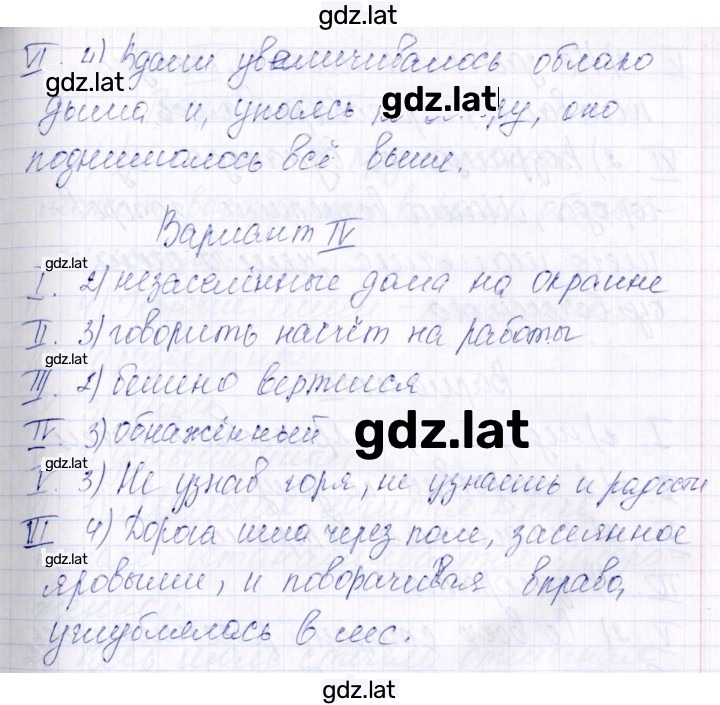 gdz.lat
VI. 4) Вдали увеличивалось облако
gdz.lat
дыма и, уносясь
gdz.lat
оно
поднималось всё выше.
Вариант IV
gdz.lat
I. 2) незаселённые дома на окраине
II. 3) говорить насчёт на работы
gdz.lat
III. 2) бешено вертешися
IV. 3) обнажённый
gdz.lat
gdz.lat
V. 3) Не узнав горя, не узнаешь и радости
VI 4) Дорога шла через поле, засеянное
gdz.lat
яровыми, и поворачивая вправо,
углублялась в лес.
gdz.lat